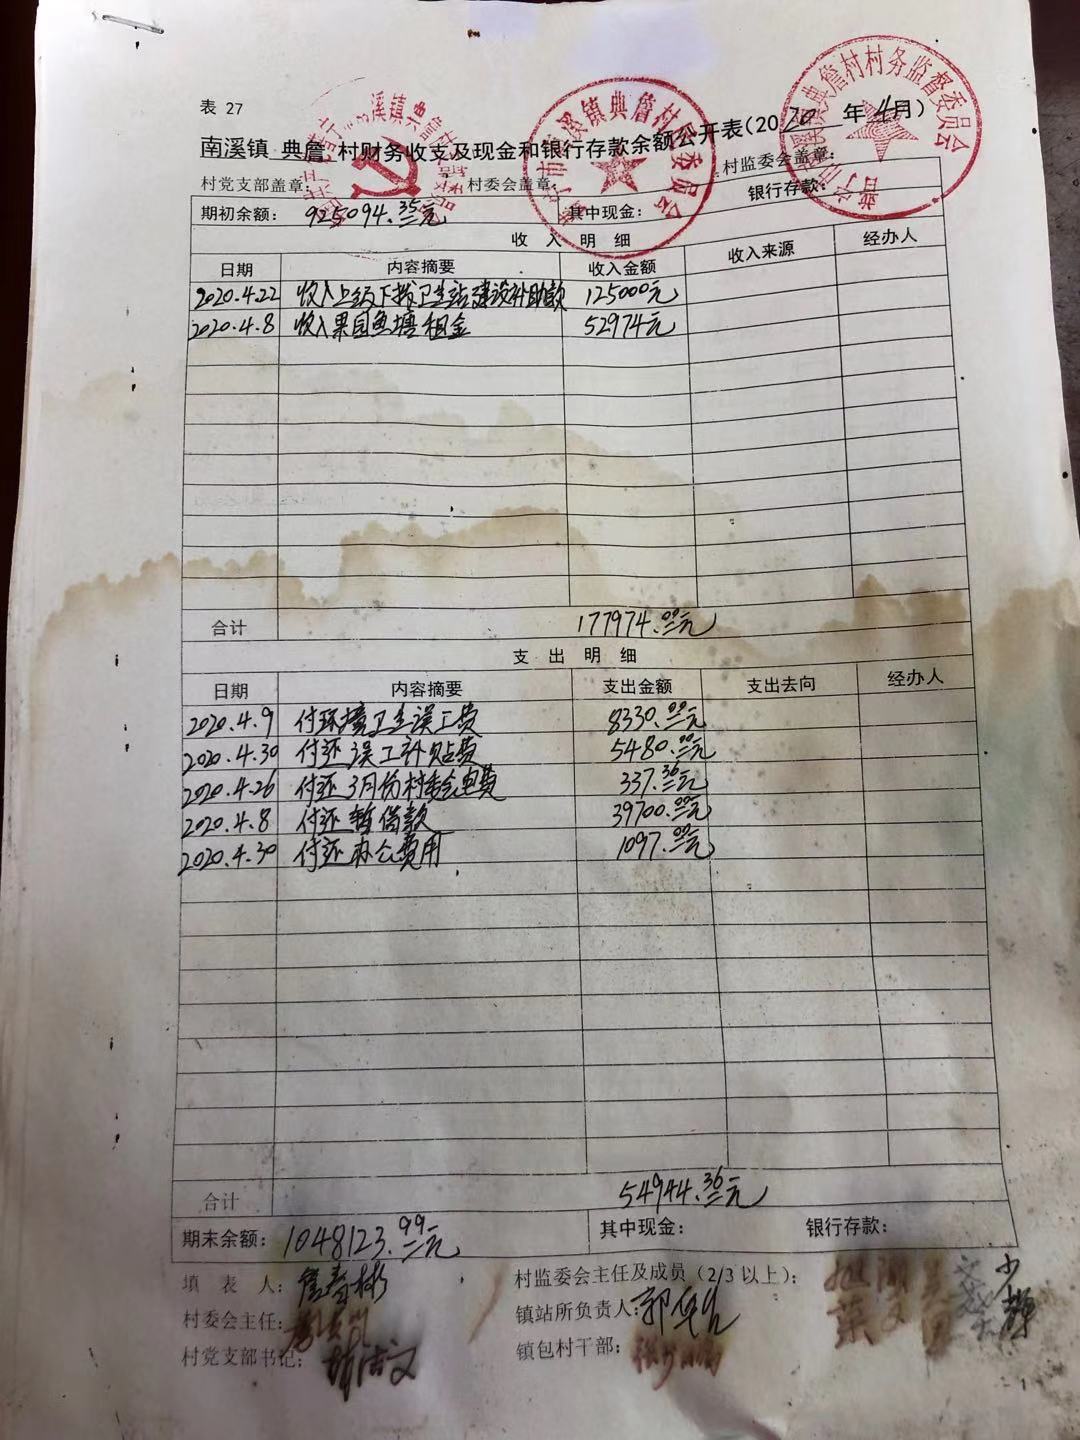 表 27
南溪镇 典詹 村财务收支及现金和银行存款余额公开表(2020 年 4月)
村党支部盖章: 村委会盖章: 村监委会盖章:
期初余额: 925094.35元 其中现金: 银行存款:
收 入 明 细
日期 内容摘要 收入金额 收入来源 经办人
2020.4.22 收入上级下拨卫生站建设补助款 125000元
2020.4.8 收入果园鱼塘租金 52974元
合计 177974.00元
支 出 明 细
日期 内容摘要 支出金额 支出去向 经办人
2020.4.9 付环境卫生误工费 8330.00元
2020.4.30 付还误工补贴费 5480.00元
2020.4.26 付还3月份村委会电费 337.36元
2020.4.8 付还暂借款 39700.00元
2020.4.30 付还办公费用 1097.00元
合计 54944.36元
期末余额: 1048123.99元 其中现金: 银行存款:
填 表 人: 詹春彬 村监委会主任及成员(2/3 以上):
村委会主任: 镇站所负责人:
村党支部书记: 镇包村干部: